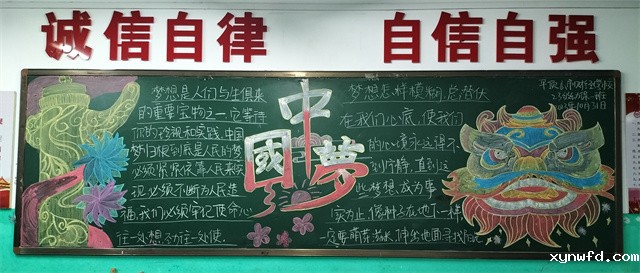 诚信自律 自信自强
梦想是人们与生俱来
的重要宝物之一,它等待
你的珍视和实践,中国
梦归根到底是人民的梦
必须紧紧依靠人民来实
现,必须不断为人民造
福,我们必须牢记使命心
往一处想,劲往一处使。
中國夢
梦想怎样模糊,总潜伏
在我们心底,使我们
的心境永远得不
到宁静,直到这
些梦想成为事
实为止,像种子在地下一样
一定要萌芽滋长,伸出地面寻找阳光
10月31日
xynwfd.com